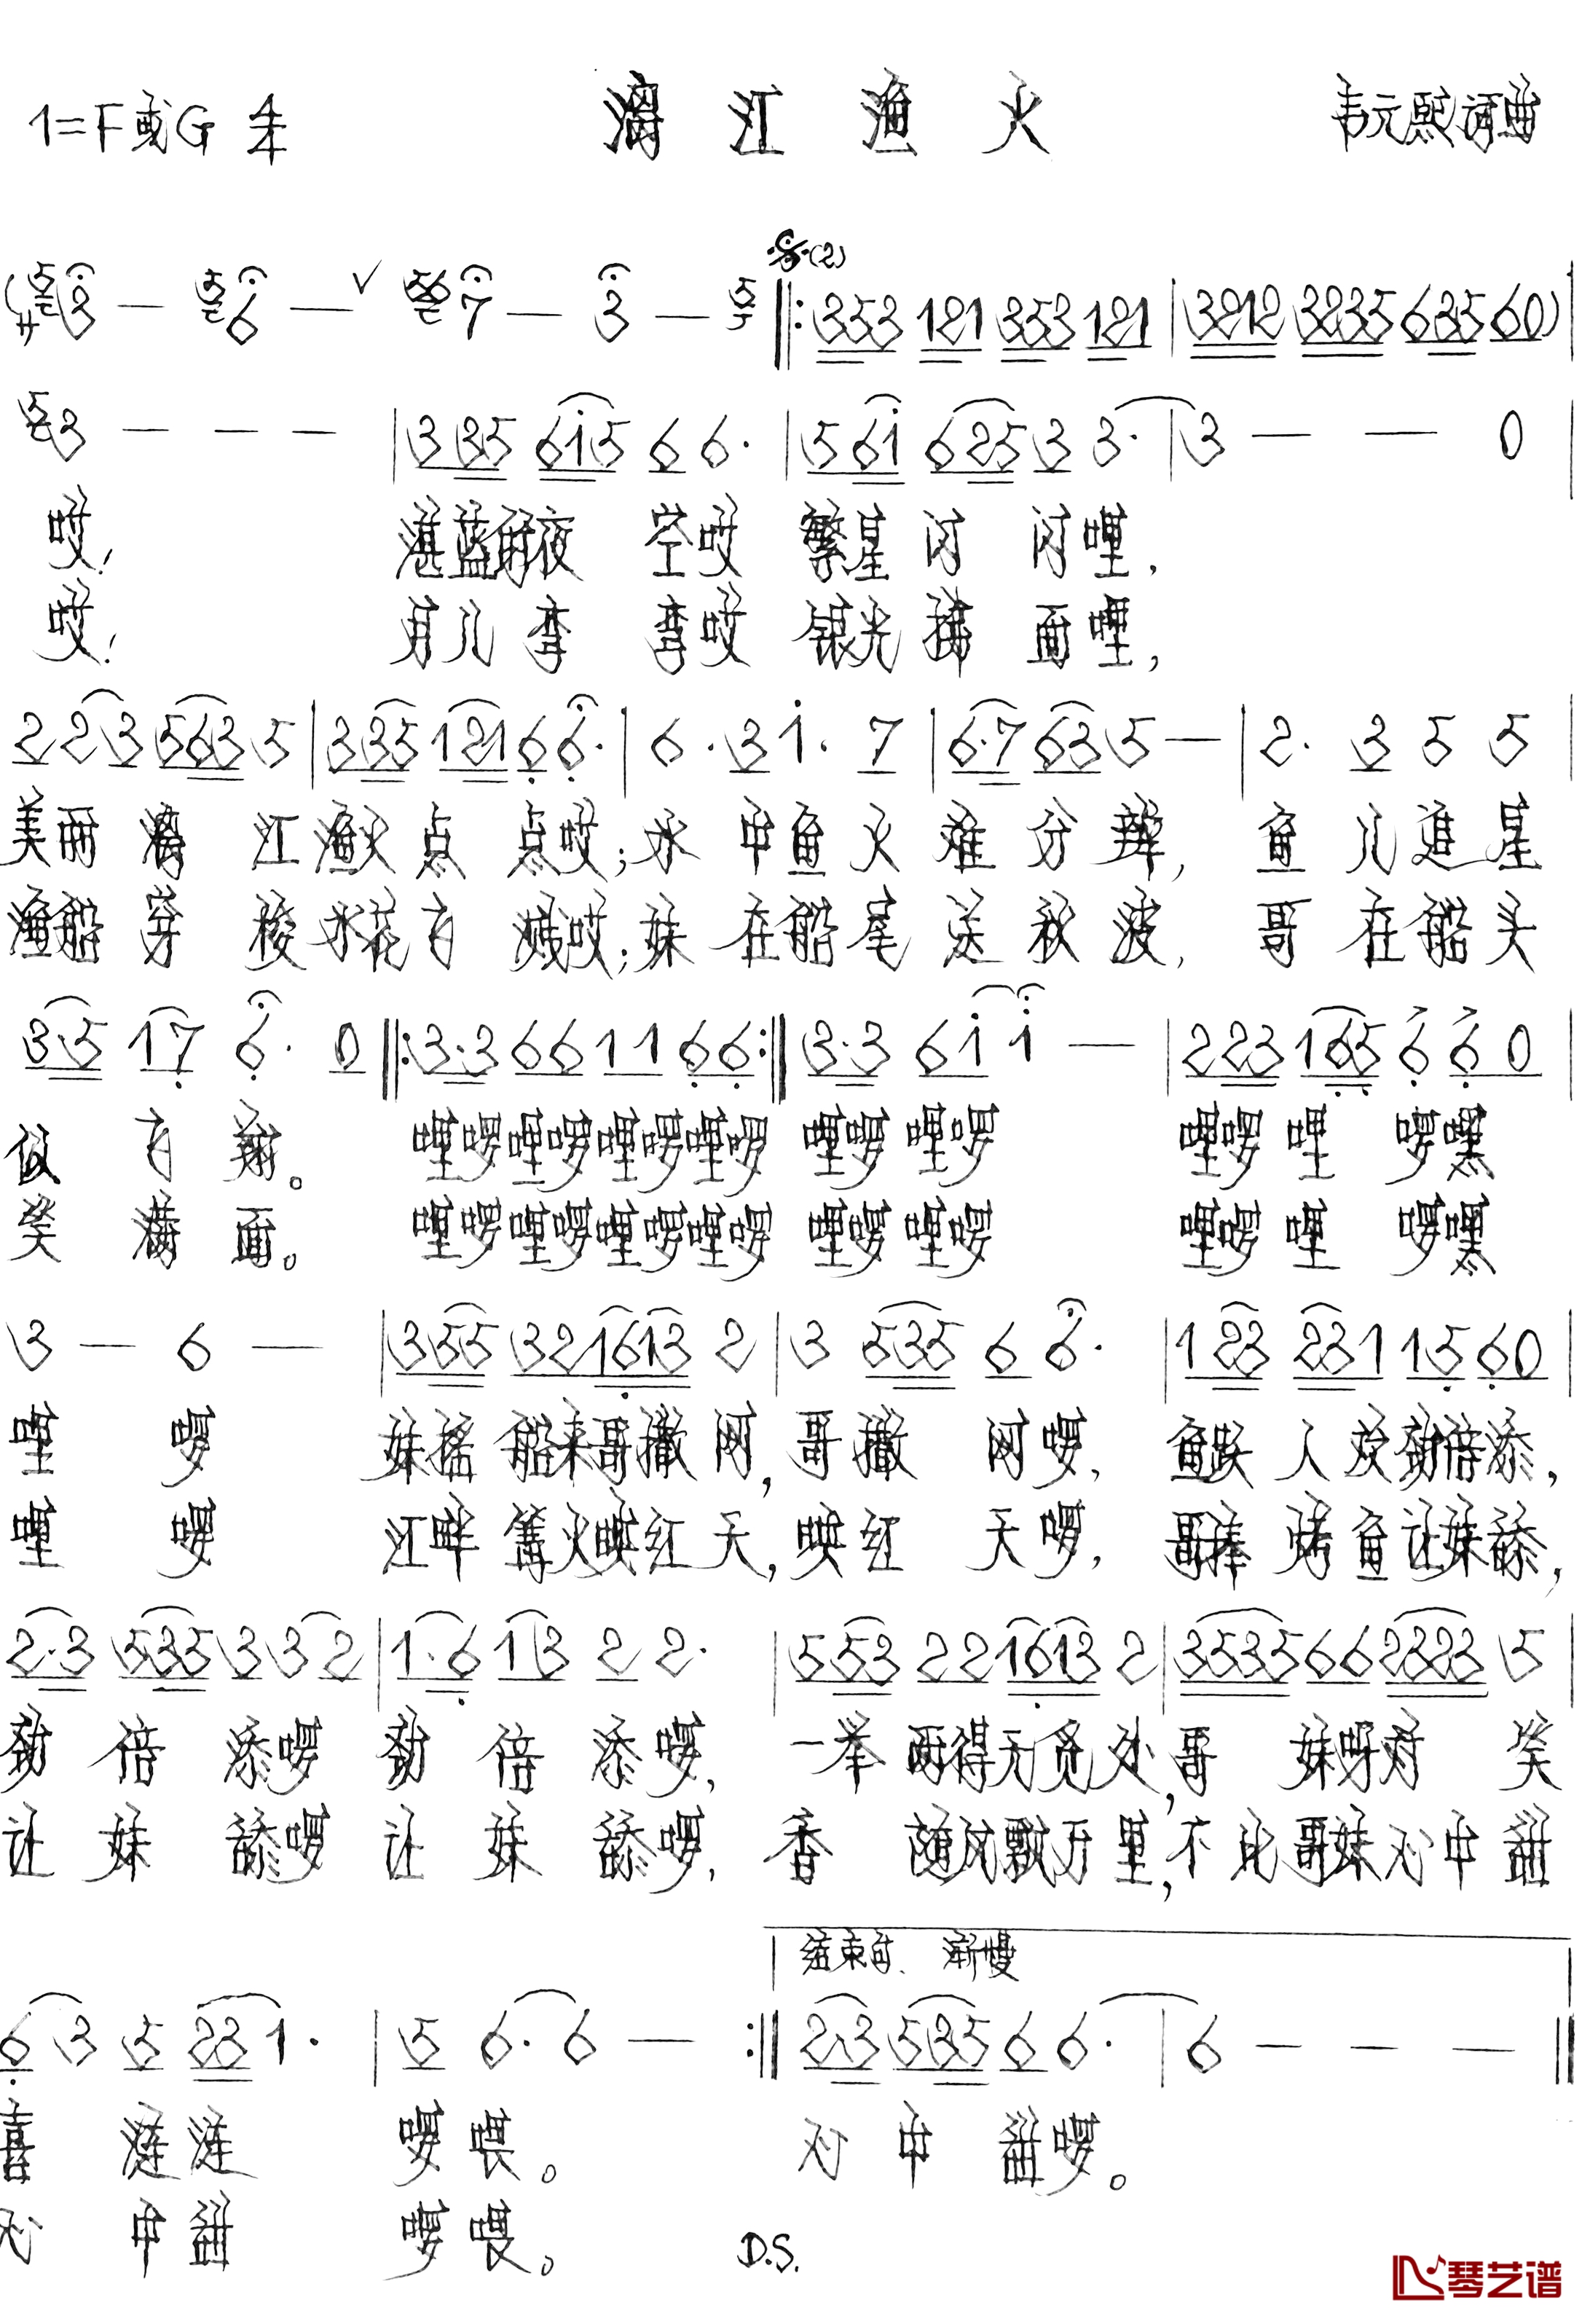 1=F或G 4/4 漓江渔火 韦元熙词曲
3 — 6 — ∨ 7 — 3 — 𝄋(2) ‖: 353 121 353 121 | 3212 3235 635 60) |
3 — — — | 3 35 615 6 6· | 5 61 625 3 3· | 3 — — 0 |
哎! 湛蓝的夜 空哎 繁星闪 闪哩,
哎! 月儿弯 弯哎 银光拂 面哩,
2 2 3 563 5 | 335 121 6 6· | 6· 3 1· 7 | 6·7 63 5 — | 2· 3 5 5 |
美丽漓 江渔火点 点哎;水 中鱼火难分辨, 鱼儿追星
渔船穿 梭水花有 溅哎;妹 在船尾送秋波, 哥在船头
3 5 1 7 6· 0 ‖: 3·3 66 11 66 :‖ 3·3 61 1 — | 223 165 6 60 |
似 有 翔。 哩啰哩啰哩啰哩啰 哩啰哩啰 哩啰哩 啰嘿
笑 满 面。 哩啰哩啰哩啰哩啰 哩啰哩啰 哩啰哩 啰嘿
3 — 6 — | 355 321613 2 | 3 535 6 6· | 123 231 15 60 |
哩 啰 妹摇船来哥撒网,哥撒 网啰, 鱼跃人欢劲倍添,
哩 啰 江畔篝火映红天,映红 天啰, 哥捧烤鱼让妹舔,
2·3 535 3 3 2 | 1·6 13 2 2· | 553 221613 2 | 3535 66 2323 5 |
劲 倍 添啰 劲 倍 添啰, 一举两得无觅处,哥 妹呀对 笑
让 妹 舔啰 让 妹 舔啰, 香 随风飘万里,不比哥妹心中甜
结束句. 渐慢
6 3 5 23 1· | 5 6· 6 — :‖ 2·3 535 6 6· | 6 — — — ‖
喜 涟涟 啰喂。 心 中 甜啰。
心 中甜 啰喂。 D.S.
琴艺谱